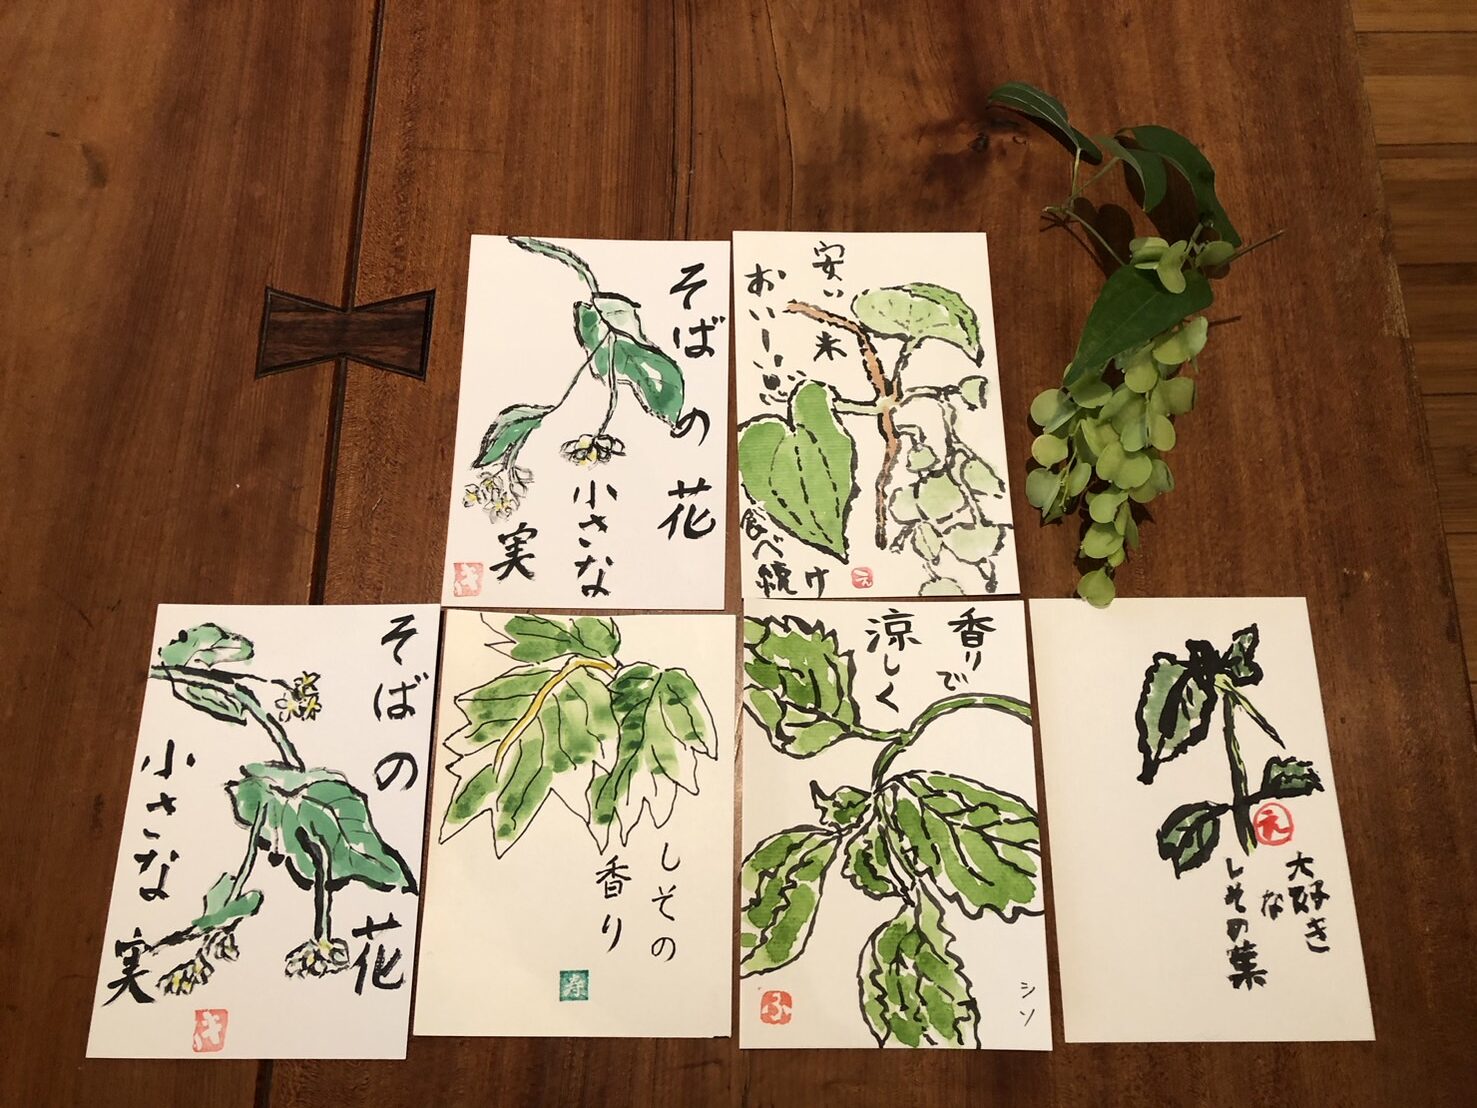 そばの花
小さな
実
き
安い米
おいしい
食べ
続け
え
そばの花
小さな
実
き
しその
香り
寿
香りで
涼しく
シソ
ふ
大好き
な
しその葉
え